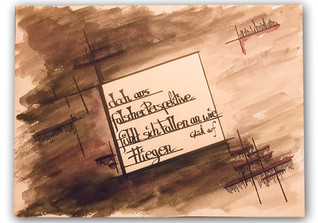 doch aus
falscher Perspektive
fühlt sich Fallen an wie
Fliegen